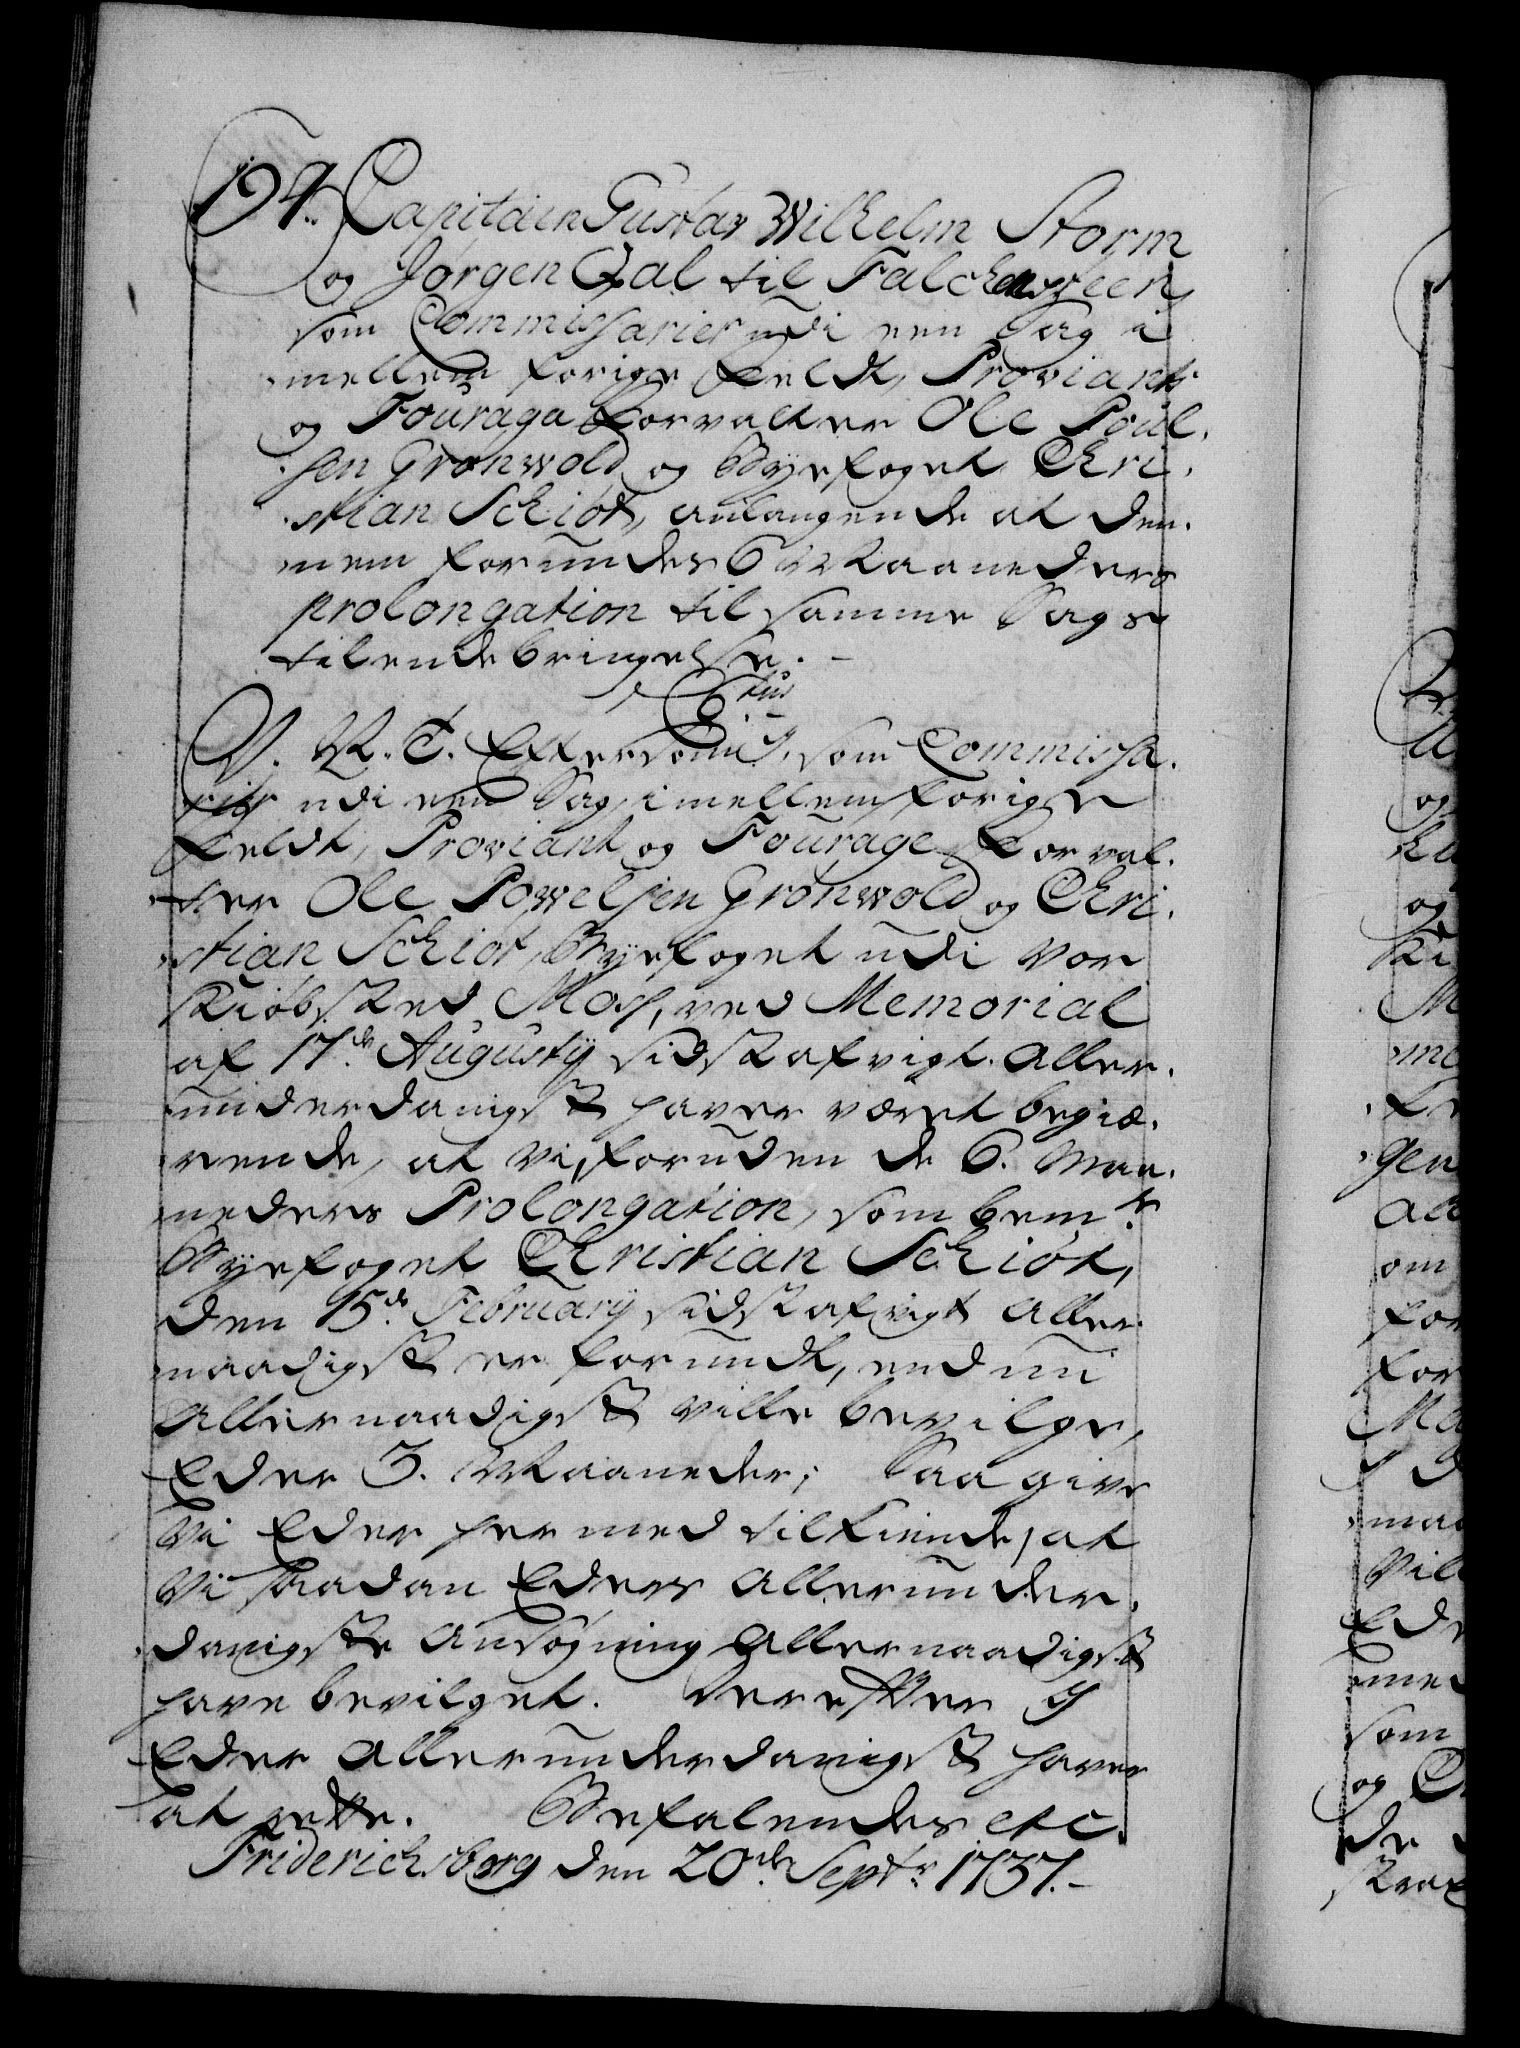 194. Capitain Gustav Wilhelm Storm
og Jørgen Qal til Falchensteen,
som Commissarier udi een Sag i
mellem forige Feldt, Proviants
og Fourage Forvalter Ole Poul-
sen Grønwold og Byefoget Chri-
stian Schiøt, anlangende at den-
nem forundes 6 Maaneders
prolongation til samme Sags
tilendebringelse.
C. 6tus
V. R. T. Eftersom I, som Commissa-
rier udi een Sag, imellem forige
Feldt, Proviant og Fourage Forval-
ter Ole Powelsen Grønwold og Chri-
stian Schiøt, Byefoget udi vor
Kiøbsted Moss, ved Memorial
af 17de Augustij sidstafvigt aller-
underdanigst haver været begiæ-
rende, at vi, foruden de 6. Maa-
neders Prolongation, som bemte
Byefoget Christian Schiøt,
den 15de Februarij sidstafvigt aller-
naadigst er forundt, end nu
allernaadigst ville bevilge,
Eder 3. Maaneder; Saa give
Vi Eder hermed tilkiende, at
Vi saadan Eders allerunder-
danigste ansøgning allernaadigst
have bevilget. Derefter I
Eder allerunderdanigst haver
at rette. Befalendes etc.
Friderichsberg den 20de Septr 1737.
og
og
Mo
Vil
Ede
med
som
og
de